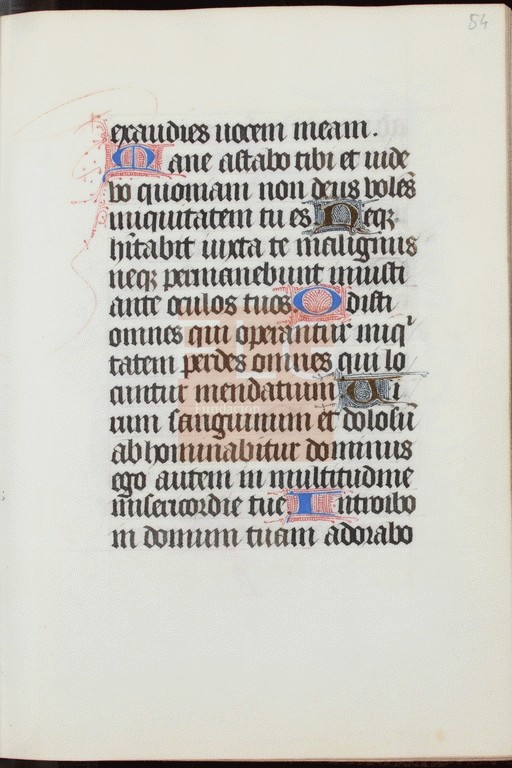 54
exaudies uocem meam.
Mane astabo tibi et uide
bo quoniam non deus volēs
iniquitatem tu es Neqꝫ
hitabit iuxta te malignus
neqꝫ permanebunt iniusti
ante oculos tuos Odisti
omnes qui operantur iniqi
tatem perdes omnes qui lo
cuntur mendatium Ui
rum sanguinum et dolosū
abhominabitur dominus
ego autem in multitudine
misericordie tue Introibo
in domum tuam adorabo
Fundación